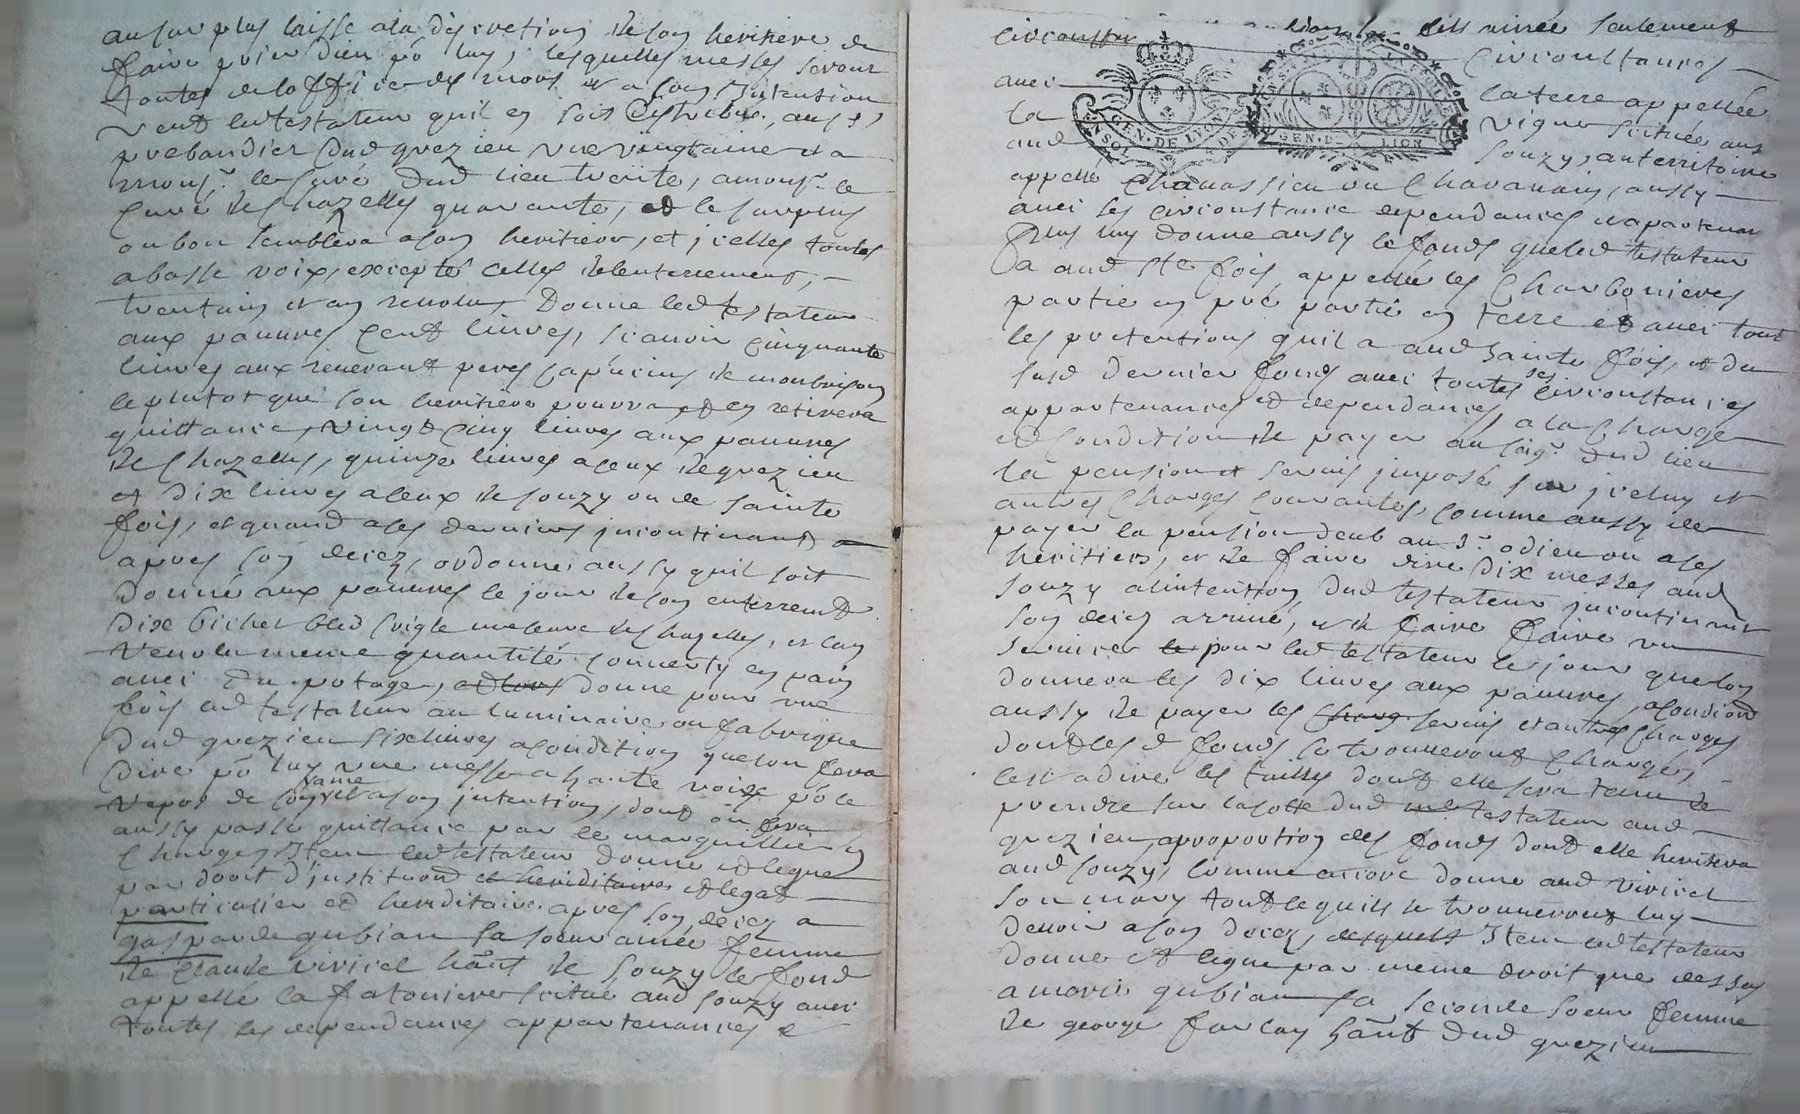 au surplus laisse a la discretion de son heritiere de
faire prier dieu po luy, lesquelles messes seront
toutes de loffice des mors et a son Intention
veut ledt testateur quil en soit distribué, au sr
prebandier dud quezieu une vingtaine et a
monsr. le curé dud lieu trente, a monsr. le
curé de Chazelles quarante, et le surplus
ou bon semblera a son heritiere, et jcelles toutes
a basse voix, excepté celles delenterrement,
trentain et an revolu, Donne led testateur
aux pauvres cent livres, scavoir cinquante
livres aux reverant peres capucins de monbrison
le plutot que son heritiere pourra et en retirera
quittance, vingt cinq livres aux pauvres
de Chazelles, quinze livres a ceux de quezieu
et dix livres a ceux de souzy ou de sainte
fois, et quand a ces derniers jncontinant
apres son decez, ordonne aussy quil soit
donné aux pauvres le jour de son enterremt
dix bichet bled soigle mesure de chazelles, et lan
revolu meme quantité converty en pain
avec du potage, donne pour une
fois led testateur au luminaire ou fabrique
dud quezieu six livres a condition quelon fera
dire po luy une messe a haute voix po le
repos de son ame et a son jntention, dont on fera
aussy passé quittance par le marguillier en
charge, Item led testateur donne et legue
par droit d'jnstitution et hereditaire et legat
particulier et hereditaire apres son decez a
gasparde gubian sa soeur ainée femme
de claude viricel hant de souzy le fond
appellé la fatoniere scitué aud souzy avec
toutes les dependances appartenances &
circonstan fils ainée seulement
circonstances
avec la terre appellée
la vigne scituée aud
aud souzy, au territoire
appellé Chavassieu ou Chavanain, aussy
avec les circonstance dependances et apartenan
Plus luy donne aussy le fonds queled testateur
a aud ste fois, appellé les Charbonieres
partie en pré partie en terre et avec tout
les pretentions quil a aud sainte fois, et du
susd dernier fonds avec toutes ses circonstances
appartenances et dependances, a la Charge
et condition de payer au seigr. dud lieu
la pension et servis jmposé sur jceluy et
autres charges courantes, comme aussy de
payer la pension deub au sr. odieu ou a ses
heritiers, et de faire dire dix messes aud
souzy alintention dud testateur jncontinant
son decez arrivé, et de faire faire un
service le pour led testateur le jour quelon
donnera les dix livres aux pauvres, a condion
aussy de payer les charg servis et autres charges
dont lesd fonds se trouveront chargés,
cest a dire les tailles dont elle sera tenue de
prendre sur lacotte dud testateur aud
quezieu, aproportion des fonds dont elle heritera
aud souzy, comme encore donne aud viricel
son mary tout ce quils se trouveront luy
devoir a son decez, desquels Item led testateur
donne et legue par meme droit que dessus
a marie gubian sa seconde soeur femme
de george farlay hant dud quezieu
GEN. DE LYON
GEN. D. LION